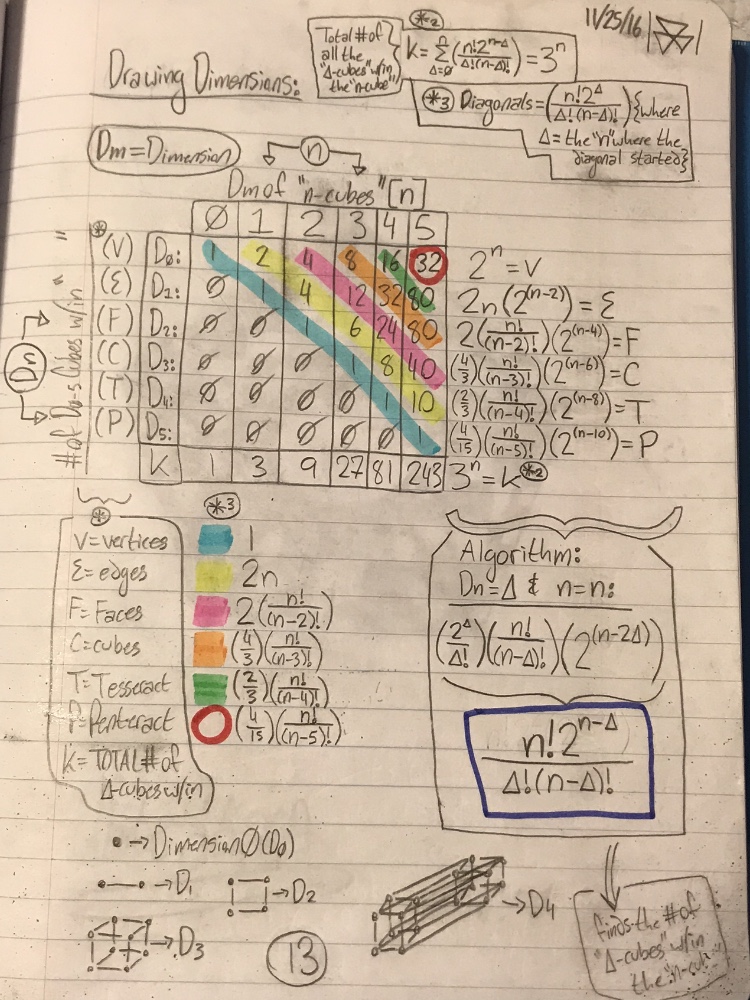 11/25/16
Drawing Dimensions:
Total # of
all the
"Δ-cubes" w/in
the "n-cube"
*2
K = Σ(n!2^(n-Δ)/Δ!(n-Δ)!) = 3^n
n
Δ=Ø
*3 Diagonals = (n!2^Δ/Δ!(n-Δ)!) {where
Δ = the "n" where the
diagonal started}
Dm = Dimension
n
Dm of "n-cubes" [n]
Ø 1 2 3 4 5
* (V) D₀: 1 2 4 8 16 32 2^n = V
(Ɛ) D₁: Ø 1 4 12 32 80 2n(2^(n-2)) = Ɛ
(F) D₂: Ø Ø 1 6 24 80 2(n!/(n-2)!)(2^(n-4)) = F
(C) D₃: Ø Ø Ø 1 8 40 (4/3)(n!/(n-3)!)(2^(n-6)) = C
(T) D₄: Ø Ø Ø Ø 1 10 (2/3)(n!/(n-4)!)(2^(n-8)) = T
(P) D₅: Ø Ø Ø Ø Ø 1 (4/15)(n!/(n-5)!)(2^(n-10)) = P
K 1 3 9 27 81 243 3^n = K *2
Dn
*
V = vertices
Ɛ = edges
F = Faces
C = cubes
T = Tesseract
P = Penteract
K = TOTAL # of
Δ-cubes w/in
*3
1
2n
2(n!/(n-2)!)
(4/3)(n!/(n-3)!)
(2/3)(n!/(n-4)!)
(4/15)(n!/(n-5)!)
Algorithm:
Dn = Δ & n = n:
(2^Δ/Δ!)(n!/(n-Δ)!)(2^(n-2Δ))
n!2^(n-Δ)/Δ!(n-Δ)!
finds the # of
"Δ-cubes" w/in
the "n-cub
• → Dimension Ø (D₀)
→ D₁
→ D₂
→ D₃
→ D₄
13